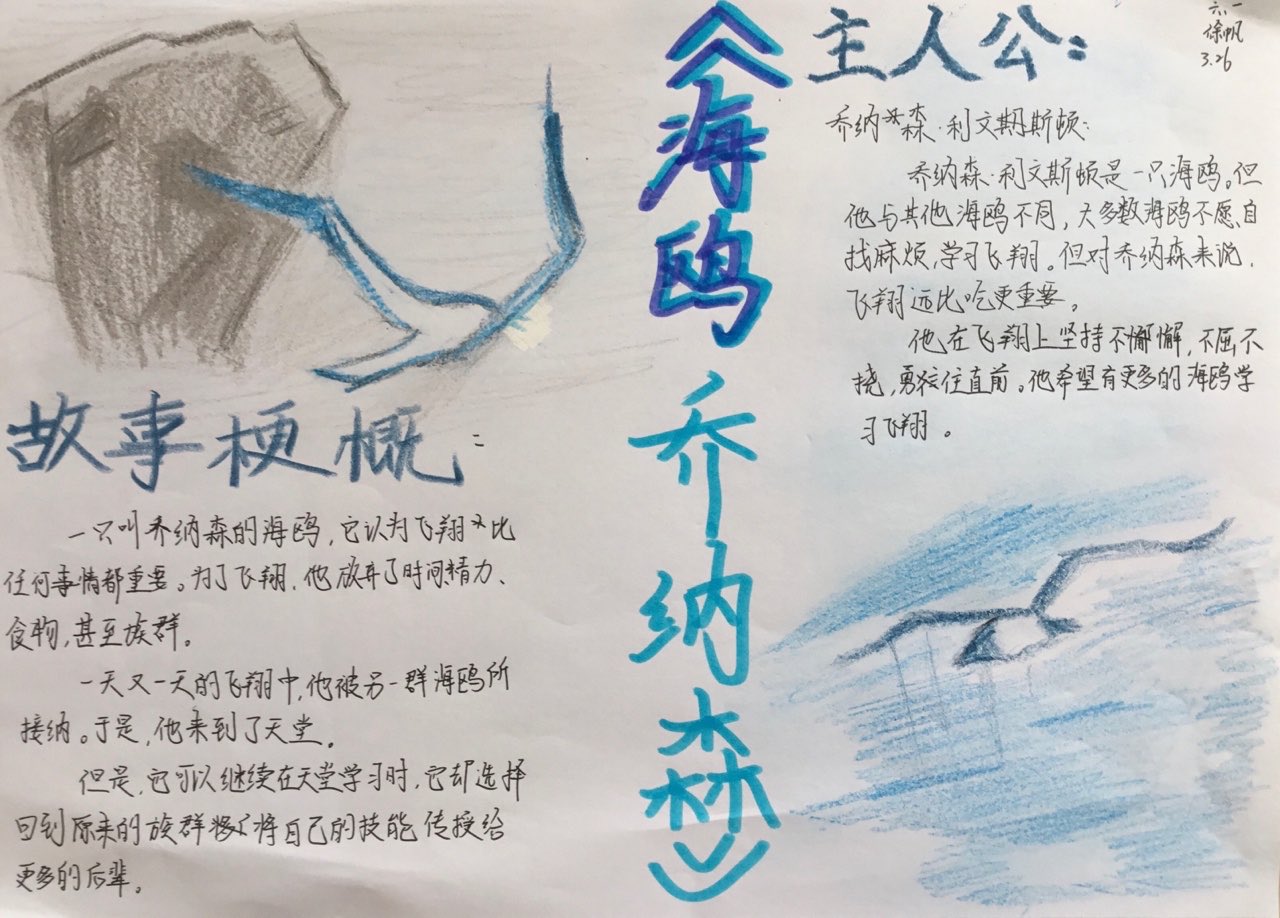 《海鸥乔纳森》
主人公：
六、一
徐帆
3.26
乔纳森·利文斯顿：
乔纳森·利文斯顿是一只海鸥。但
他与其他海鸥不同，大多数海鸥不愿自
找麻烦，学习飞翔。但对乔纳森来说，
飞翔远比吃更重要。
他在飞翔上坚持不懈，不屈不
挠，勇往直前。他希望有更多的海鸥学
习飞翔。
故事梗概：
一只叫乔纳森的海鸥，它认为飞翔比
任何事情都重要。为了飞翔，他放弃了时间精力、
食物，甚至族群。
一天又一天的飞翔中，他被另一群海鸥所
接纳。于是，他来到了天堂。
但是，它可以继续在天堂学习时，它却选择
回到原来的族群将自己的技能传授给
更多的后辈。